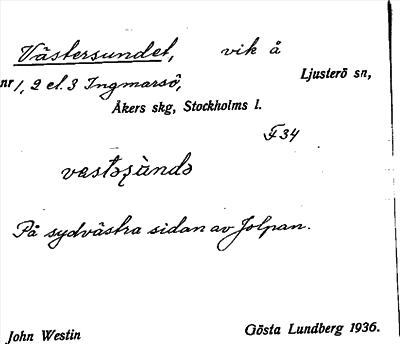 Västersundet, vik å
nr 1, 2 el. 3 Ingmarsö, Ljusterö sn,
Åkers skg, Stockholms l.
F34
västəʂùndə
På sydvästra sidan av Jolpan.
John Westin Gösta Lundberg 1936.